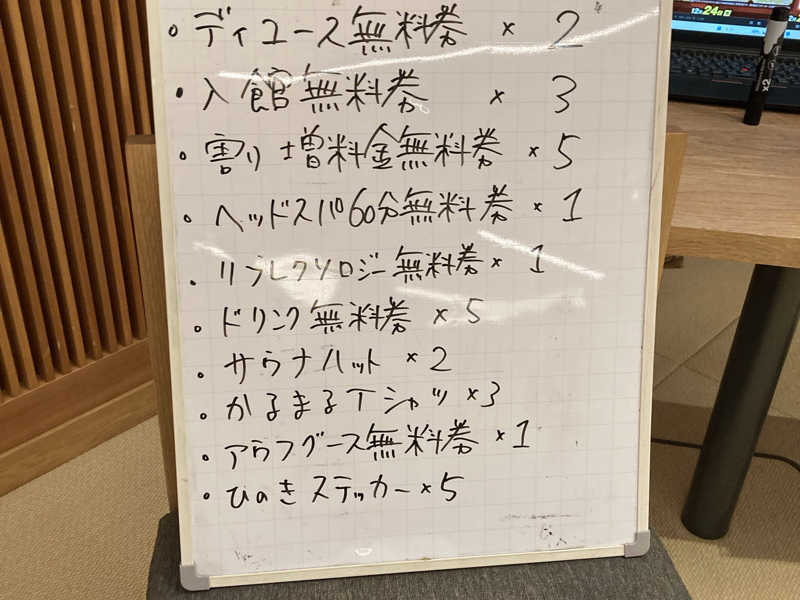 ・デイユース無料券 × 2
・入館無料券 × 3
・割り増料金無料券 × 5
・ヘッドスパ60分無料券 × 1
・リフレクソロジー無料券 × 1
・ドリンク無料券 × 5
・サウナハット × 2
・かるまるTシャツ ×3
・アウフグース無料券 ×1
・ひのきステッカー×5
12月24日